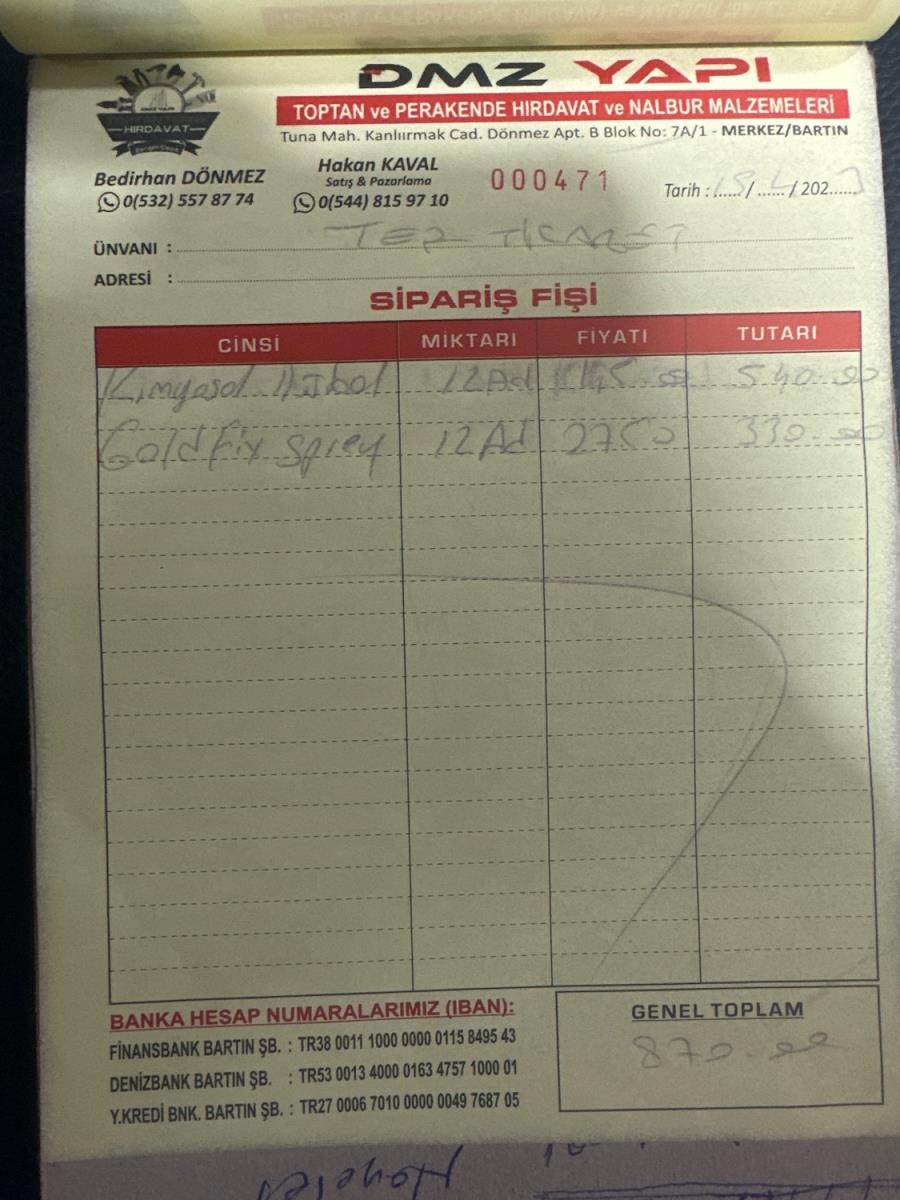 DMZ YAPI
DMZ YAPI
HIRDAVAT
TOPTAN ve PERAKENDE HIRDAVAT ve NALBUR MALZEMELERİ
Tuna Mah. Kanlıırmak Cad. Dönmez Apt. B Blok No: 7A/1 - MERKEZ/BARTIN
Bedirhan DÖNMEZ
0(532) 557 87 74
Hakan KAVAL
Satış & Pazarlama
0(544) 815 97 10
000471
Tarih : ....../ ....../ 202......
ÜNVANI : TEP TİCARET
ADRESİ :
SİPARİŞ FİŞİ
CİNSİ MİKTARI FİYATI TUTARI
Kimyasal 12Ad 540.00
Gold fix sprey 12Ad 2750 330.00
BANKA HESAP NUMARALARIMIZ (IBAN):
FİNANSBANK BARTIN ŞB. : TR38 0011 1000 0000 0115 8495 43
DENİZBANK BARTIN ŞB. : TR53 0013 4000 0163 4757 1000 01
Y.KREDİ BNK. BARTIN ŞB. : TR27 0006 7010 0000 0049 7687 05
GENEL TOPLAM
870.00